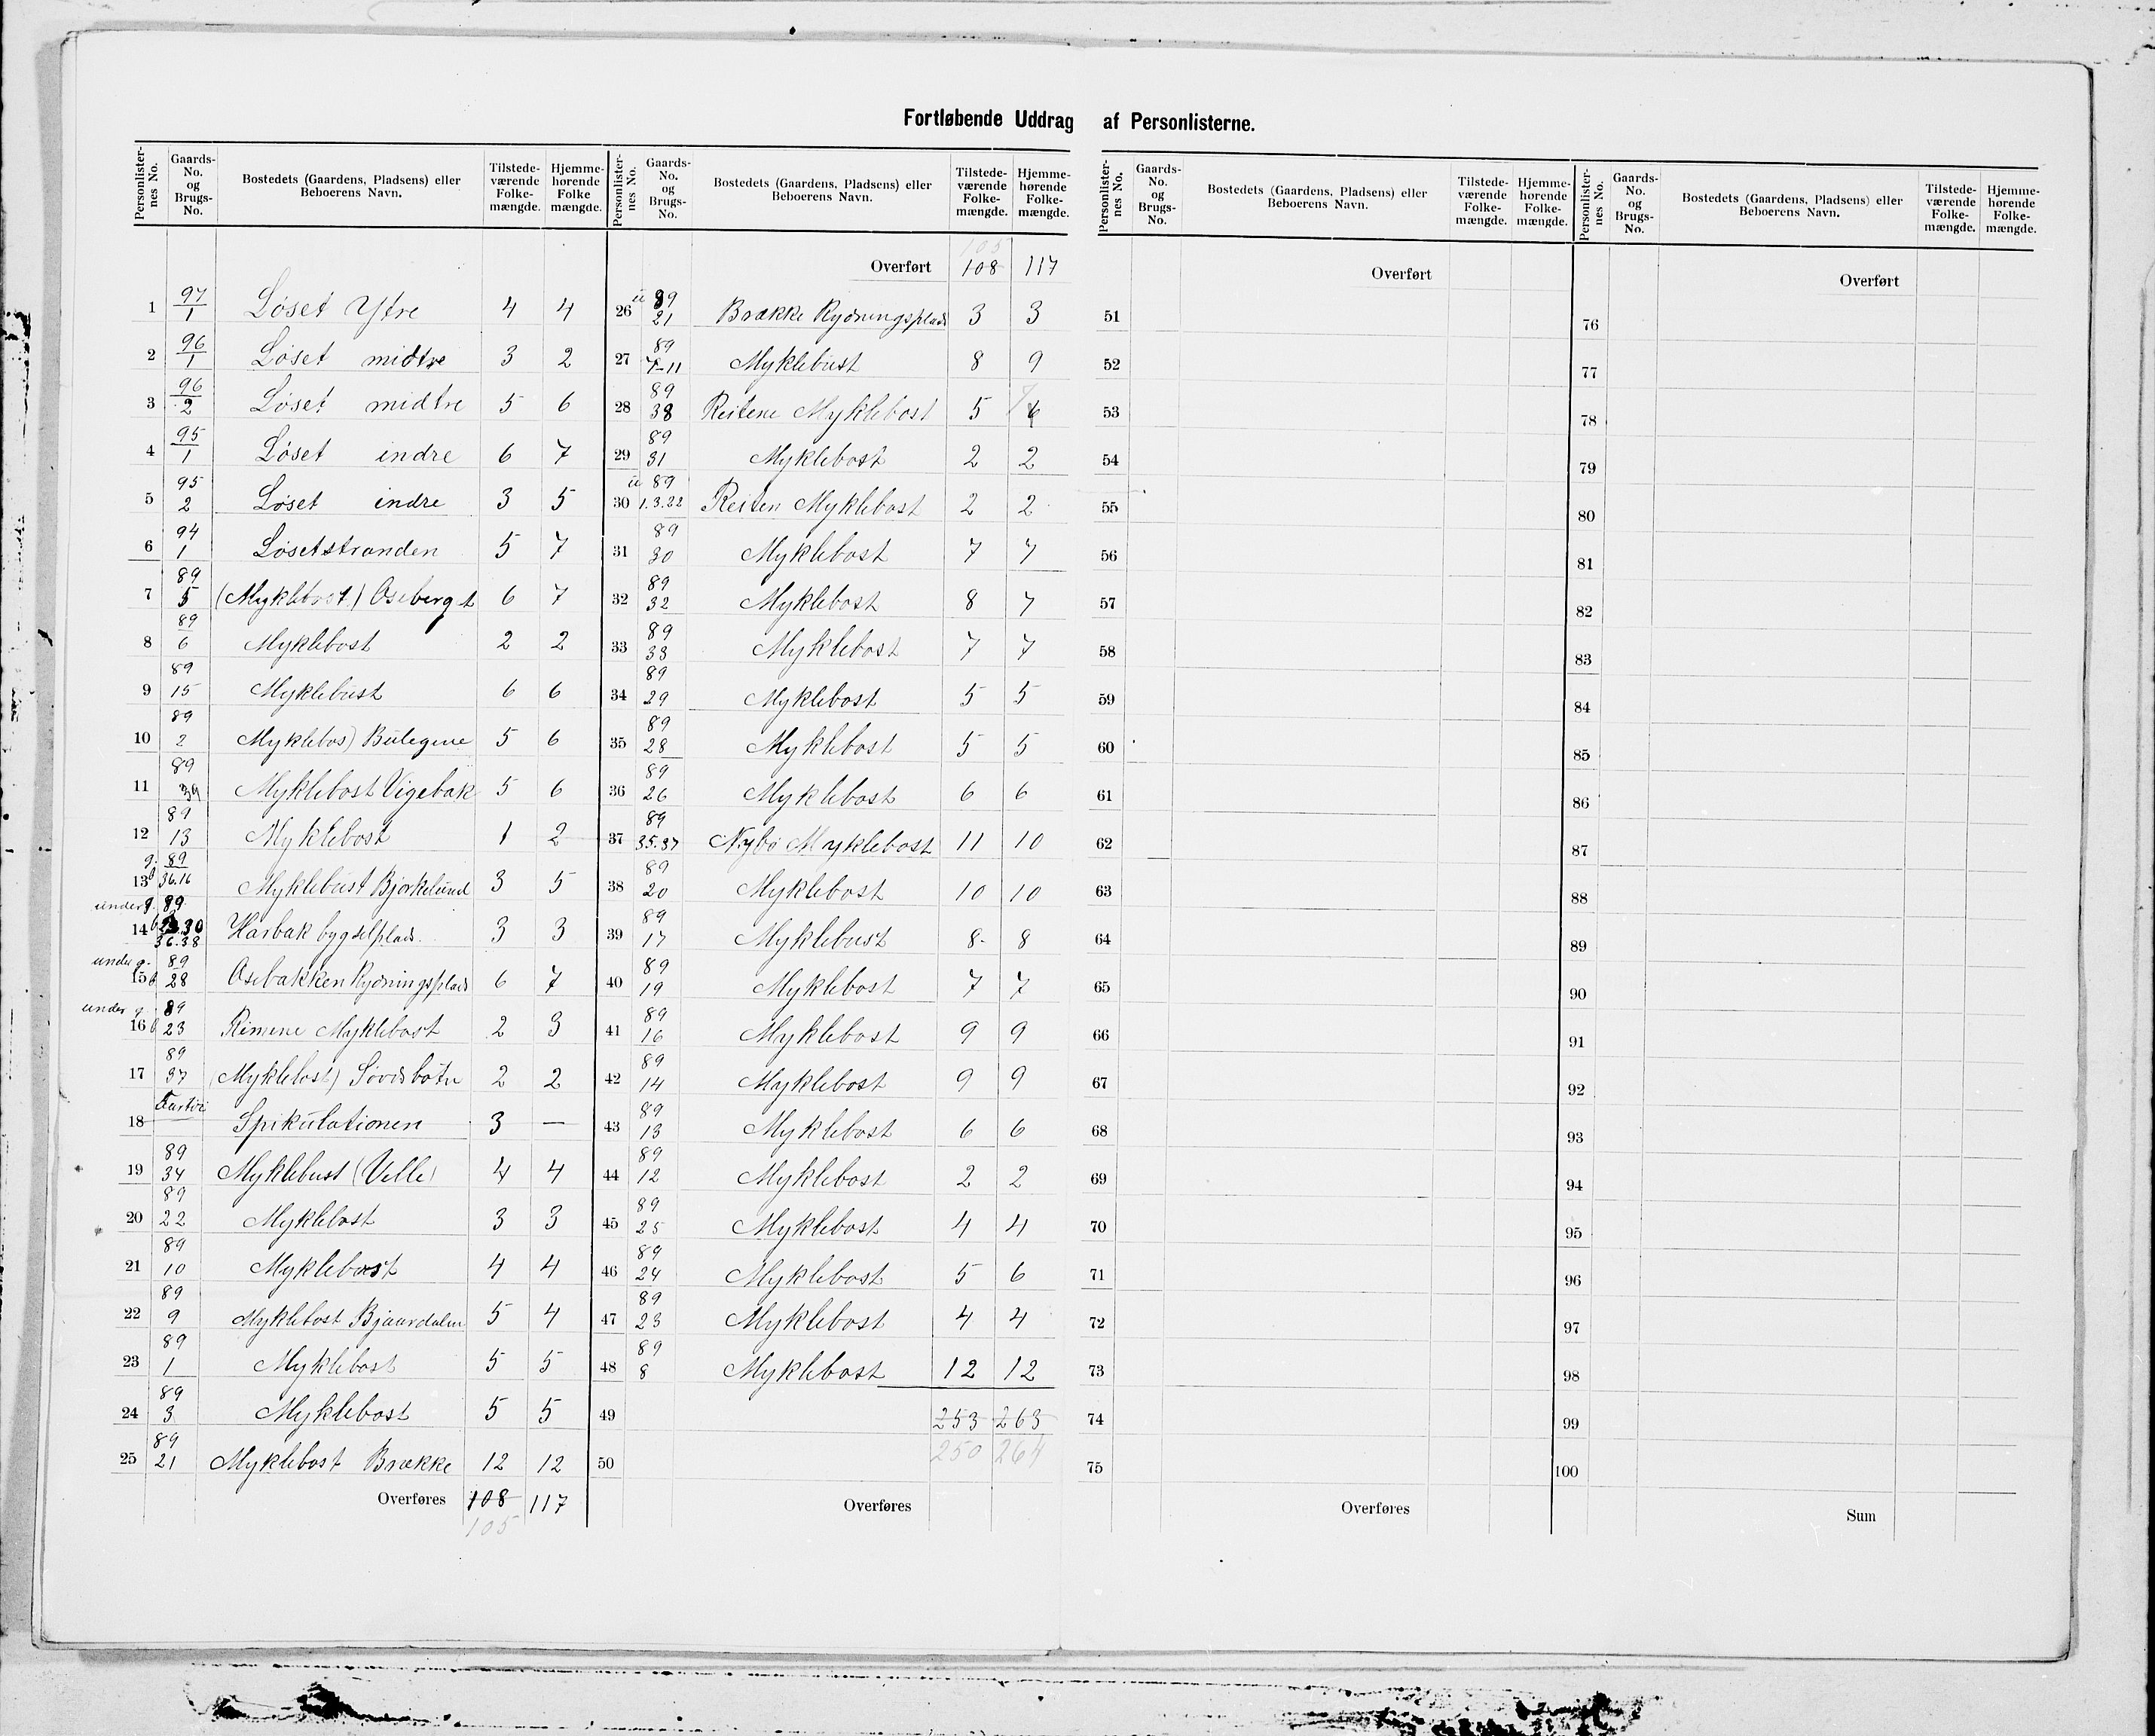 Fortløbende Uddrag af Personlisterne.
Personlister-nes No. Gaards-No. og Brugs-No. Bostedets (Gaardens, Pladsens) eller Beboerens Navn. Tilstede-værende Folke-mængde. Hjemme-hørende Folke mængde.
1 97/1 Løset Ytre 4 4
2 96/1 Løset midtre 3 2
3 96/2 Løset midtre 5 6
4 95/1 Løset indre 6 7
5 95/2 Løset indre 3 5
6 94/1 Løsetstranden 5 7
7 89/5 (Myklebost) Oseberget 6 7
8 89/6 Myklebost 2 2
9 89/15 Myklebust 6 6
10 89/2 Myklebost) 5 6
11 89/39 Myklebost Vigebak 5 6
12 89/13 Myklebost 1 2
13 g. 89 b 36.16 Myklebust Bjørkelund 3 5
14 under g. 89 30 36.38 Harbak bygselplads. 3 3
15 under g. 89 b 28 Osebakken Rydningsplads 6 7
16 under g. 89 b 23 Rimene Myklebost 2 3
17 89/37 (Myklebost) Søvdsbotn 2 2
18 Fartøi Spikulationen 3 —
19 89/34 Myklebust (Velle) 4 4
20 89/22 Myklebost 3 3
21 89/10 Myklebost 4 4
22 89/9 Myklebost Bjaardalen 5 4
23 89/1 Myklebost 5 5
24 89/3 Myklebost 5 5
25 89/21 Myklebost Brække 12 12
Overføres 108 117
105
Personlister-nes No. Gaards-No. og Brugs-No. Bostedets (Gaardens, Pladsens) eller Beboerens Navn. Tilstede-værende Folke-mængde. Hjemme-hørende Folke-mængde.
105
Overført 108 117
26 u 89/21 Brække Rydningsplads 3 3
27 89/7-11 Myklebust 8 9
28 89/38 Reitene Myklebost 5 6
29 89/31 Myklebost 2 2
30 u 89/1.3.22 Reiten Myklebost 2 2
31 89/30 Myklebost 7 7
32 89/32 Myklebost 8 7
33 89/33 Myklebost 7 7
34 89/29 Myklebost 5 5
35 89/28 Myklebost 5 5
36 89/26 Myklebost 6 6
37 89/35.37 Nybø Myklebost 11 10
38 89/20 Myklebost 10 10
39 89/17 Myklebust 8 8
40 89/19 Myklebost 7 7
41 89/16 Myklebost 9 9
42 89/14 Myklebost 9 9
43 89/13 Myklebost 6 6
44 89/12 Myklebost 2 2
45 89/25 Myklebost 4 4
46 89/24 Myklebost 5 6
47 89/23 Myklebost 4 4
48 89/8 Myklebost 12 12
49 253 263
50 250 264
Overføres
Personlister-nes No. Gaards-No. og Brugs-No. Bostedets (Gaardens, Pladsens) eller Beboerens Navn. Tilstede-værende Folke-mængde. Hjemme-hørende Folke-mængde.
Overført
51
52
53
54
55
56
57
58
59
60
61
62
63
64
65
66
67
68
69
70
71
72
73
74
75
Overføres
Personlister-nes No. Gaards-No. og Brugs-No. Bostedets (Gaardens, Pladsens) eller Beboerens Navn. Tilstede-værende Folke-mængde. Hjemme-hørende Folke-mængde.
Overført
76
77
78
79
80
81
82
83
84
85
86
87
88
89
90
91
92
93
94
95
96
97
98
99
100
Sum